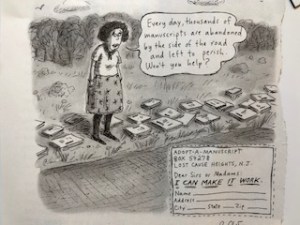 Every day, thousands of
manuscripts are abandoned
by the side of the road
and left to perish.
Won't you help?
ADOPT-A-MANUSCRIPT
BOX 54278
LOST CAUSE HEIGHTS, N.J.
Dear Sirs or Madams:
I CAN MAKE IT WORK.
Name
Address
City State Zip